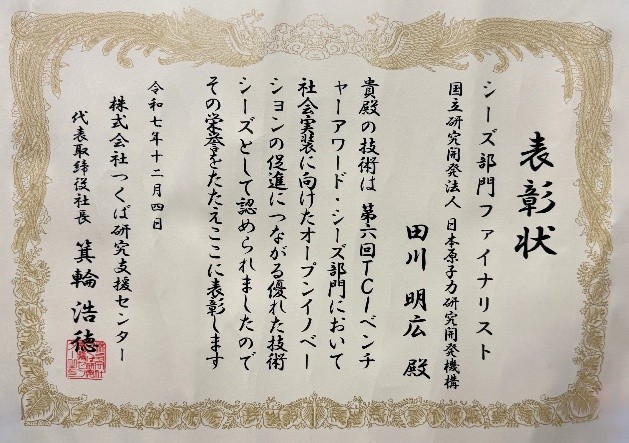 表彰状
シーズ部門ファイナリスト
国立研究開発法人 日本原子力研究開発機構
田川 明広 殿
貴殿の技術は 第六回TCIベンチ
ャーアワード・シーズ部門において
社会実装に向けたオープンイノベー
ションの促進につながる優れた技術
シーズとして認められましたので
その栄誉をたたえここに表彰します
令和七年十二月四日
株式会社つくば研究支援センター
代表取締役社長 箕輪 浩徳